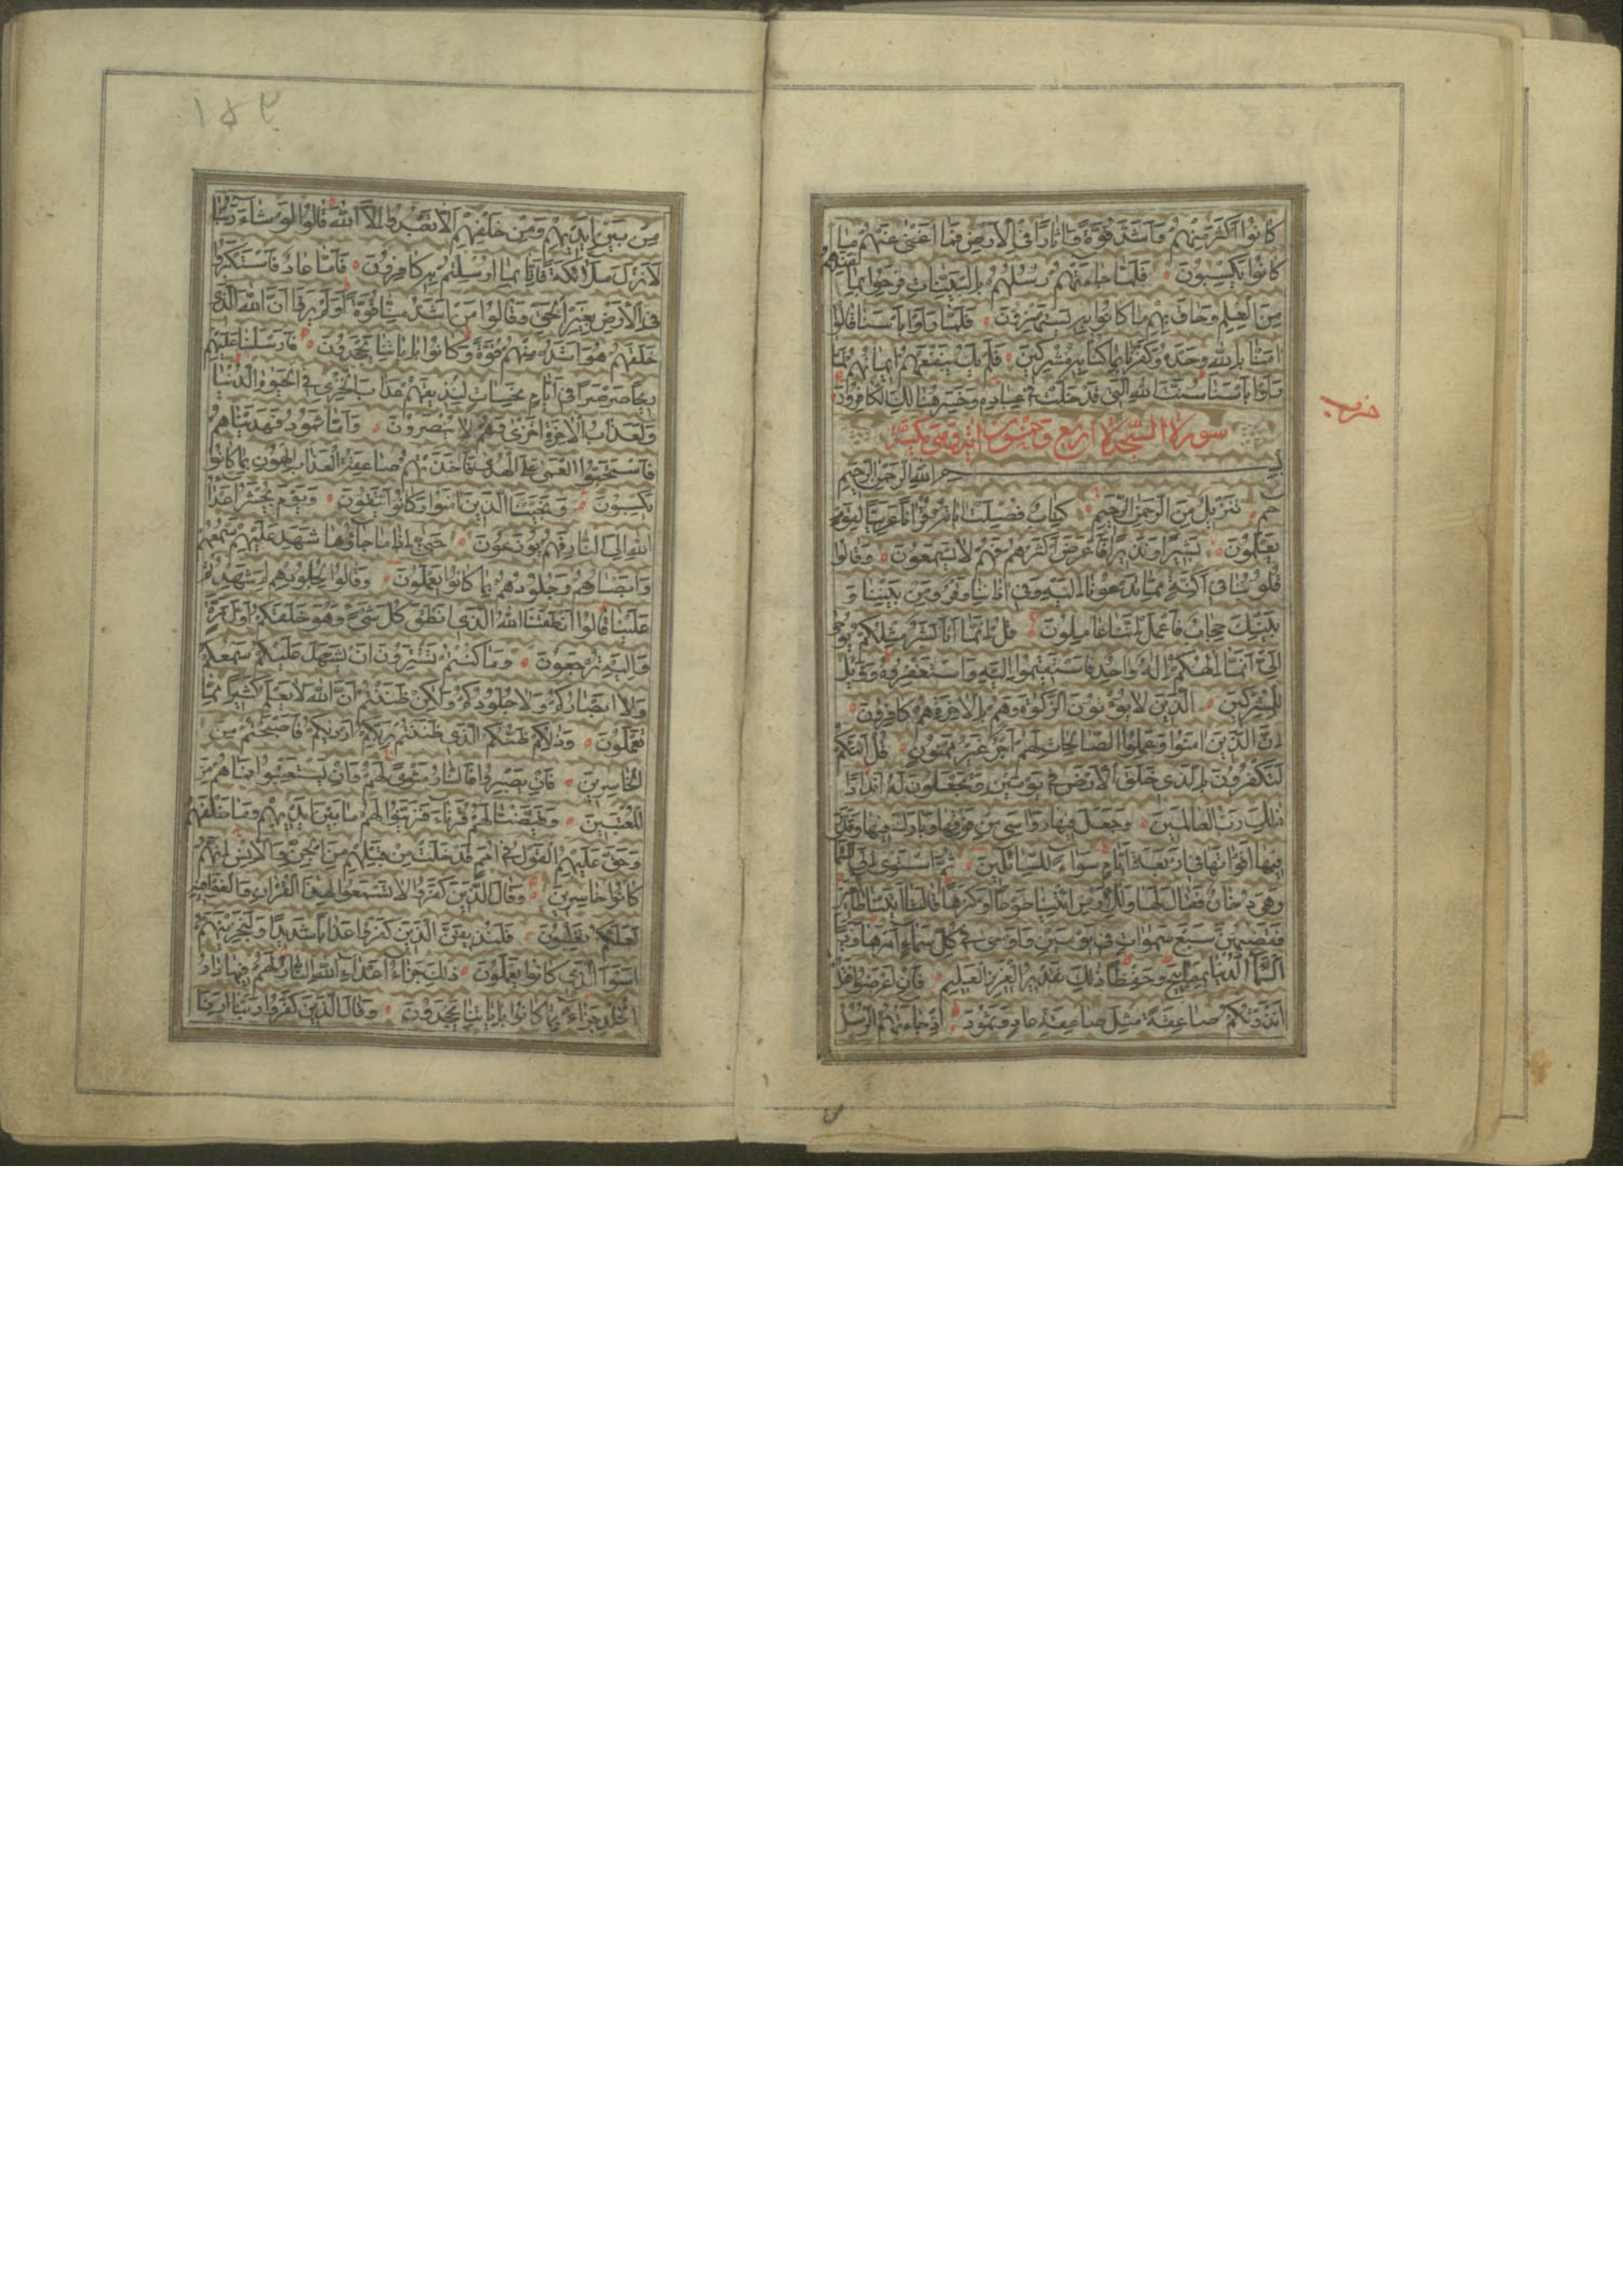 كانوا اكثر منهم واشد قوة واثارا في الارض فما اغنى عنهم ما
كانوا يكسبون فلما جاءتهم رسلهم بالبينات فرحوا بما عندهم
من العلم وحاق بهم ما كانوا به يستهزؤن فلما راوا باسنا قالوا
امنا بالله وحده وكفرنا بما كنا به مشركين فلم يك ينفعهم ايمانهم لما
راوا باسنا سنت الله التي قد خلت في عباده وخسر هنالك الكافرون
حزب
سورة السجدة اربع وخمسون اية وهي مكية
بسم الله الرحمن الرحيم
حم تنزيل من الرحمن الرحيم كتاب فصلت اياته قرانا عربيا لقوم
يعلمون بشيرا ونذيرا فاعرض اكثرهم فهم لا يسمعون وقالوا
قلوبنا في اكنة مما تدعونا اليه وفي اذاننا وقر ومن بيننا و
بينك حجاب فاعمل اننا عاملون قل انما انا بشر مثلكم يوحى
الي انما الهكم اله واحد فاستقيموا اليه واستغفروه وويل
للمشركين الذين لا يؤتون الزكوة وهم بالاخرة هم كافرون
ان الذين امنوا وعملوا الصالحات لهم اجر غير ممنون قل ائنكم
لتكفرون بالذي خلق الارض في يومين وتجعلون له اندادا
ذلك رب العالمين وجعل فيها رواسي من فوقها وبارك فيها وقدر
فيها اقواتها في اربعة ايام سواء للسائلين ثم استوى الى السماء
وهي دخان فقال لها وللارض ائتيا طوعا او كرها قالتا اتينا طائعين
فقضيهن سبع سموات في يومين واوحى في كل سماء امرها وزينا
السماء الدنيا بمصابيح وحفظا ذلك تقدير العزيز العليم فان اعرضوا فقل
انذرتكم صاعقة مثل صاعقة عاد وثمود اذ جاءتهم الرسل
١٥٢
من بين ايديهم ومن خلفهم الا تعبدوا الا الله قالوا لو شاء ربنا
لانزل ملائكة فانا بما ارسلتم به كافرون فاما عاد فاستكبروا
في الارض بغير الحق وقالوا من اشد منا قوة اولم يروا ان الله الذي
خلقهم هو اشد منهم قوة وكانوا باياتنا يجحدون فارسلنا عليهم
ريحا صرصرا في ايام نحسات لنذيقهم عذاب الخزي في الحيوة الدنيا
ولعذاب الاخرة اخزى وهم لا ينصرون واما ثمود فهديناهم
فاستحبوا العمى على الهدى فاخذتهم صاعقة العذاب الهون بما كانوا
يكسبون ونجينا الذين امنوا وكانوا يتقون ويوم يحشر اعداء
الله الى النار فهم يوزعون حتى اذا ما جاؤها شهد عليهم سمعهم
وابصارهم وجلودهم بما كانوا يعملون وقالوا لجلودهم لم شهدتم
علينا قالوا انطقنا الله الذي انطق كل شيء وهو خلقكم اول مرة
واليه ترجعون وما كنتم تستترون ان يشهد عليكم سمعكم
ولا ابصاركم ولا جلودكم ولكن ظننتم ان الله لا يعلم كثيرا مما
تعملون وذلكم ظنكم الذي ظننتم بربكم ارديكم فاصبحتم من
الخاسرين فان يصبروا فالنار مثوى لهم وان يستعتبوا فما هم من
المعتبين وقيضنا لهم قرناء فزينوا لهم ما بين ايديهم وما خلفهم
وحق عليهم القول في امم قد خلت من قبلهم من الجن والانس انهم
كانوا خاسرين وقال الذين كفروا لا تسمعوا لهذا القران والغوا فيه
لعلكم تغلبون فلنذيقن الذين كفروا عذابا شديدا ولنجزينهم
اسوا الذي كانوا يعملون ذلك جزاء اعداء الله النار لهم فيها دار
الخلد جزاء بما كانوا باياتنا يجحدون وقال الذين كفروا ربنا ارنا